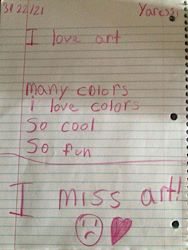 3/22/21 Yaressi
I love art
Many colors
i love colors
So cool
So fun
I MISS art!